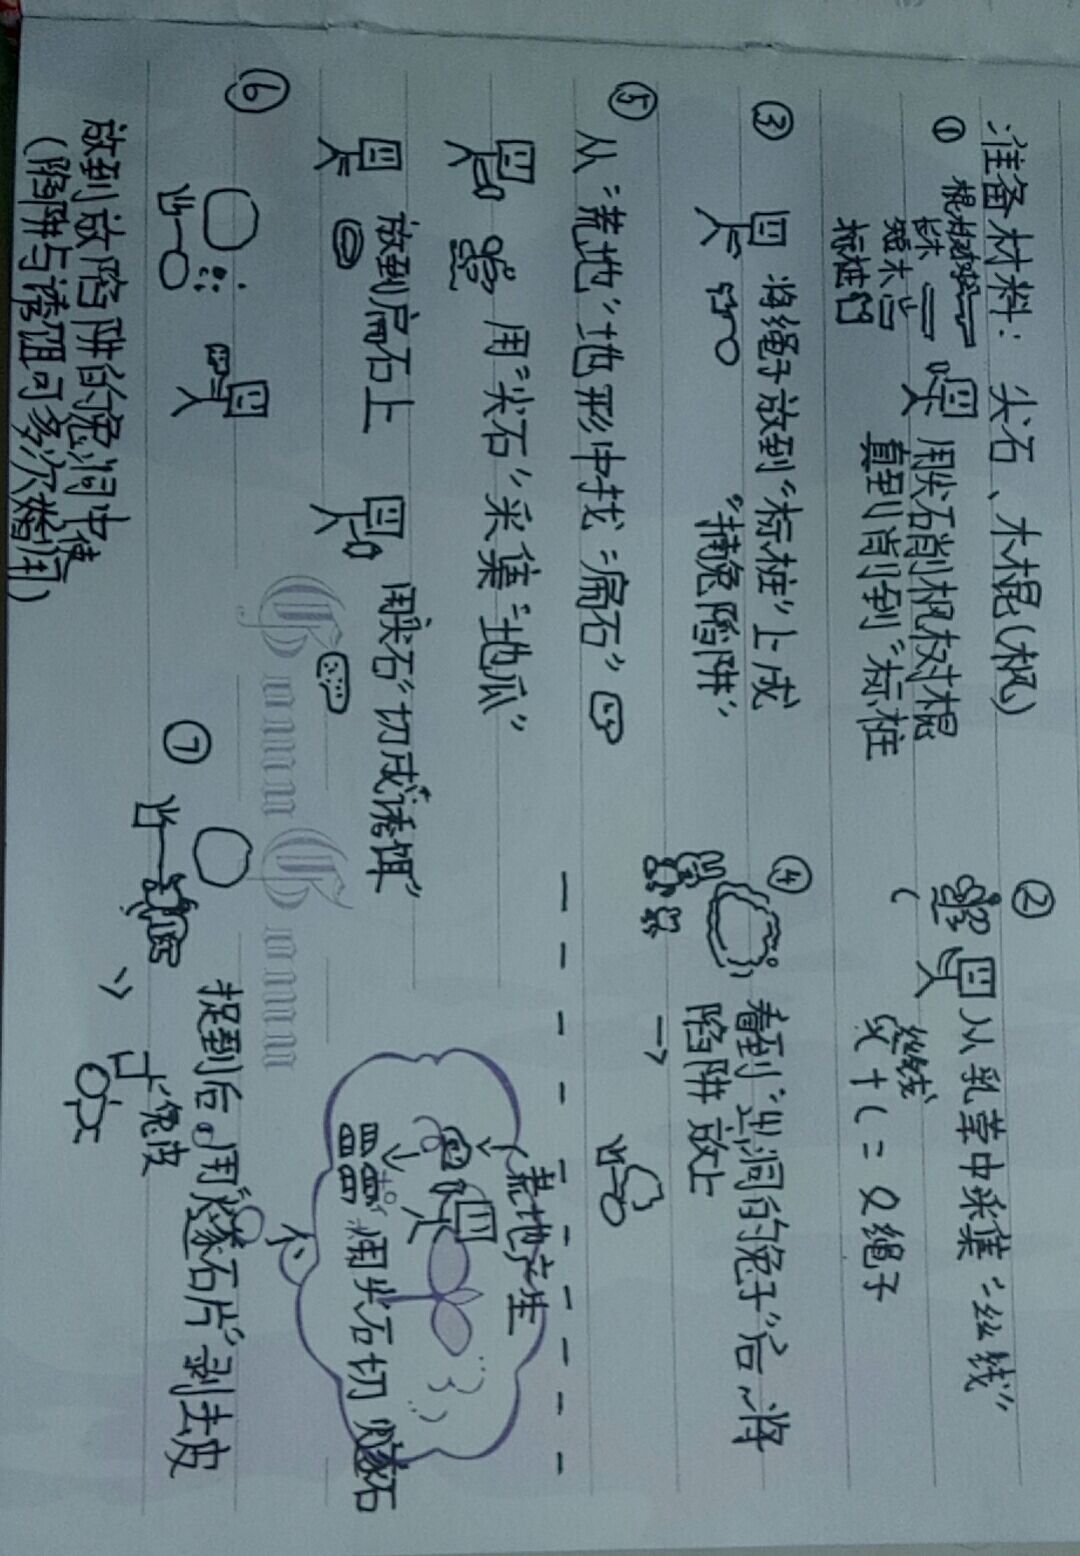 准备材料： 尖石 、木棍(枫)
①
用尖石削枫杈对棍
直到削到“标桩
标桩
②
从乳草中采集“丝线”
丝线
( = 绳子
③
将绳子放到“标桩”上成
“捕兔陷阱”
④
看到“出洞的兔子”后~将
陷阱放上
⑤
从“荒地”地形中找“扁石”
用“尖石”采集“地瓜”
放到扁石上
用“尖石”切成诱饵”
⑥
放到放陷阱的兔洞中
(陷阱与诱饵可多次使用)
⑦
捉到后 用“燧石片”剥去皮
兔皮
荒地产生
用尖石切 燧石